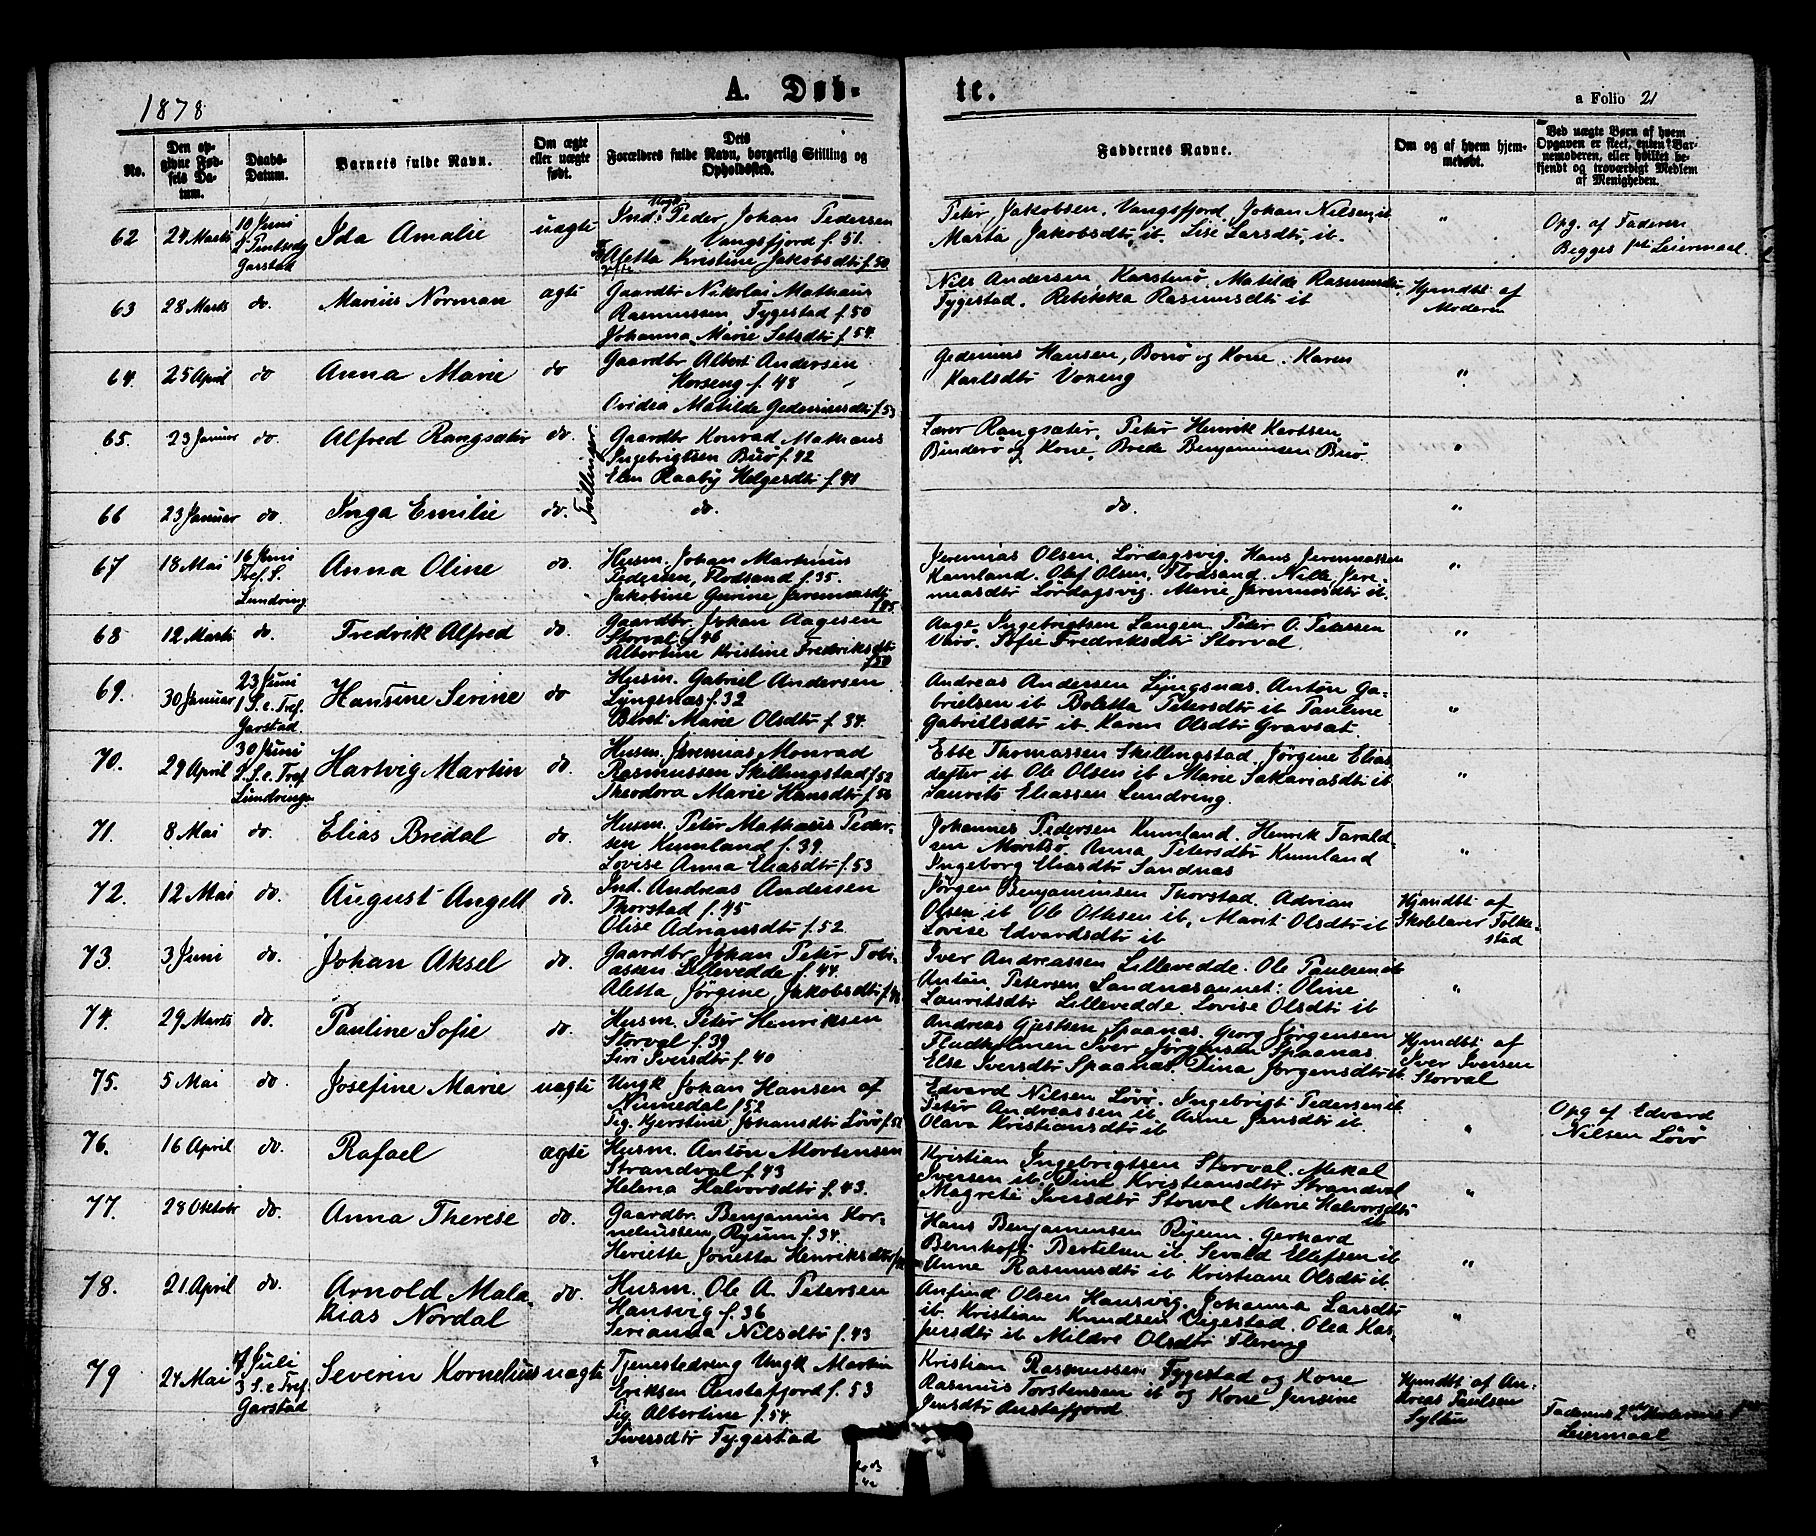 1878
A. Døb-
te.
a Folio 21
No.
Den op-
givne Fød-
sels Da-
tum.
Daabs-
Datum.
Barnets fulde Navn.
Om ægte
eller uægte
født.
Dets
Forældres fulde Navn, borgerlig Stilling og
Opholdssted.
Faddernes Navne.
Om og af hvem hjem-
medøbt.
Ved uægte Børn af hvem
Opgaven er skeet, enten Bar-
nemoderen, eller hvilket be-
kjendt og troværdigt Medlem
af Menigheden.
62
24 Marts
10 Juni
2 Pintsedg
Garstad
Ida Amalie
uægte
Ind. Ungk. Peder Johan Pedersen
Vangsfjord f. 51.
Aletta Kristine Jakobsdtr f. 50
Peter Jakobsen, Vangsfjord, Johan Nilsen ib
Marta Jakobsdtr, ib. Lise Larsdtr, ib.
"
Opg. af Faderen
Begges 1ste Leiermaal.
63
28 Marts
do.
Marius Norman
ægte
Gaardbr Nikolai Mathæus
Rasmussen, Tygestad f. 50
Johanna Marie Setsdtr f. 54.
Nils Andersen Karstenø, Matilde Rasmusdtr,
Tygestad, Rebekka Rasmusdtr ib
Hjmdbt af
Moderen
64.
25 April
do
Anna Marie
do
Gaardbr Albert Andersen
Horseng f. 48
Ovidia Matilde Gedeniusdtr f. 53
Gedenius Hansen, Borø og Kone. Karen
Karlsdtr Voxeng
"
65.
23 Januar
do.
Alfred Rangsæter
do.
Tvillinger
Gaardbr Konrad Mathæus
Ingebrigtsen Buø f. 42
Elen Raaby Helgesdtr f. 41
Færø Rangsæter, Peter Henrik Karlsen,
Binderø og Kone, Brede Benjaminsen Buø.
"
66
23 Januar
do.
Inga Emilie
do.
do.
do.
"
67
18 Mai
16 Juni
Tref. S.
Lundring
Anna Oline
do.
Husm. Johan Martinus
Pedersen, Flodsand f. 35.
Jakobine Gurine Jeremiasdtr
f 45
Jeremias Olsen, Lördagsvig. Hans Jeremiassen
Kamland. Olaf Olsen, Flodsand. Nille Jere-
miasdtr Lördagsvig. Marie Jeremiasdtr ib.
"
68
12 Marts
do.
Fredrik Alfred
do.
Gaardbr Johan Aagesen
Storval f. 46
Albertine Kristine Fredriksdtr
f 50
Aage Ingebrigtsen Langen. Peter O. Petersen
Varø. Sofie Fredriksdtr Storval.
"
69.
30 Januar
23 Juni
1 S. e. Tref.
Garstad
Hansine Serine
do
Husm. Gabriel Andersen
Lyngsnæs f. 32
Beret Marie Olsdtr f. 34.
Andreas Andersen Lyngsnæs. Anton Ga-
brielsen ib Boletta Petersdtr ib Pauline
Gabrielsdtr ib. Karen Olsdtr Gravsæt.
"
70.
29 April
30 Juni
2. S. e. Tref.
Lundringen
Hartvig Martin
do.
Husm. Jeremias Monrad
Rasmussen Skillingstad f. 52
Theodora Marie Hansdtr f. 56
Ebbe Thomassen Skillingstad. Jörgine Elias
datter ib Ole Olsen ib Marie Sakariasdtr ib
Laurits Eliassen Lundring.
"
71.
8. Mai
do.
Elias Bredal
do.
Husm. Peter Mathæus Peder-
sen Kumland f. 39.
Lovise Anna Eliasdtr f. 53
Johannes Pedersen Kumland. Henrik Tarald-
sen Moritsø, Anna Petersdtr Kumland
Ingeborg Eliasdtr Sandnæs
"
72.
12 Mai
do.
August Angell
do.
Ind. Andreas Andersen
Thorstad f. 45
Olise Adriansdtr f. 52
Jörgen Benjaminsen Thorstad, Adrian
Olsen ib Ole Olsen ib, Marit Olsdtr ib
Lovise Edvardsdtr ib
Hjmdbt af
Skolelærer Folke-
stad
73.
3 Juni
do.
Johan Aksel
do.
Gaardbr Johan Peter Tobi-
assen Lillevedde f. 44.
Aletta Jörgine Jakobsdtr f.
Iver Andreassen Lillevedde. Ole Paulsen ib
Anton Petersen Sandnæsannet. Oline
Lauritsdtr Lillevedde. Lovise Olsdtr ib
"
74.
29 Marts
do.
Pauline Sofie
do.
Husm. Peter Henriksen
Storval f. 39
Siri Iversdtr f. 40
Andreas Gjertsen Spaanæs. Georg Jörgensen
Fladholmen Iver Jörgensen Spaanæs.
Else Iversdtr Spaanæs. Dina Jörgensdtr ib
Hjmdbt af
Iver Iversen
Storval
75.
5 Mai
do.
Josefine Marie
uægte
Ungk Johan Hansen af
Numedal f 52
Pig. Kjerstine Johansdtr Lövø f. 51
Edvard Nilsen Lövø. Ingebrigt Pedersen ib
Peter Andreassen ib. Anne Jensdtr ib.
Olava Kristiansdtr ib
"
Opg af Edvard
Nilsen Lövø
76.
16 April
do.
Rafael
ægte
Husm. Anton Mortensen
Strandval f. 43
Helena Halvorsdtr f. 43.
Kristian Ingebrigtsen Storval. Mekal
Iversen ib. Dine Kristiansdtr Strandval
Magrete Iversdtr Storval Marie Halvorsdtr
ib
"
77.
28 Oktobr
do.
Anna Therese
do.
Gaardbr. Benjamin Kor-
neliussen, Ryum f. 34.
Heriette Jonetta Henriksdtr f
Hans Benjaminsen Ryum. Gerhard
Bernhoft Bertelsen ib Sevald Ellefsen ib
Anne Rasmusdtr ib Kristiane Olsdtr ib
"
78.
21 April
do.
Arnold Mala-
kias Nordal
do.
Husm. Ole A. Petersen
Hansvig f. 36
Serianna Nilsdtr f. 43
Anfind Olsen Hansvig. Johanna Larsdtr
ib. Kristian Knudsen Vegestad. Olea Kas-
persdtr ib Mildre Olsdtr Flereng
"
79
24 Mai
7 Juli
3 S. e Tref.
Garstad
Severin Kornelius
uægte
Tjenestedreng Ungk Martin
Eriksen Anstafjord f. 53
Pig Albertine f. 54
Iversdtr Tygestad
Kristian Rasmussen Tygestad og Kone
Rasmus Torstensen ib og Kone Jensine
Jensdtr Anstafjord
Hjmdbt af An-
dreas Paulsen
Sylten
Faderens 2det Moderens 1ste
Leiermaal